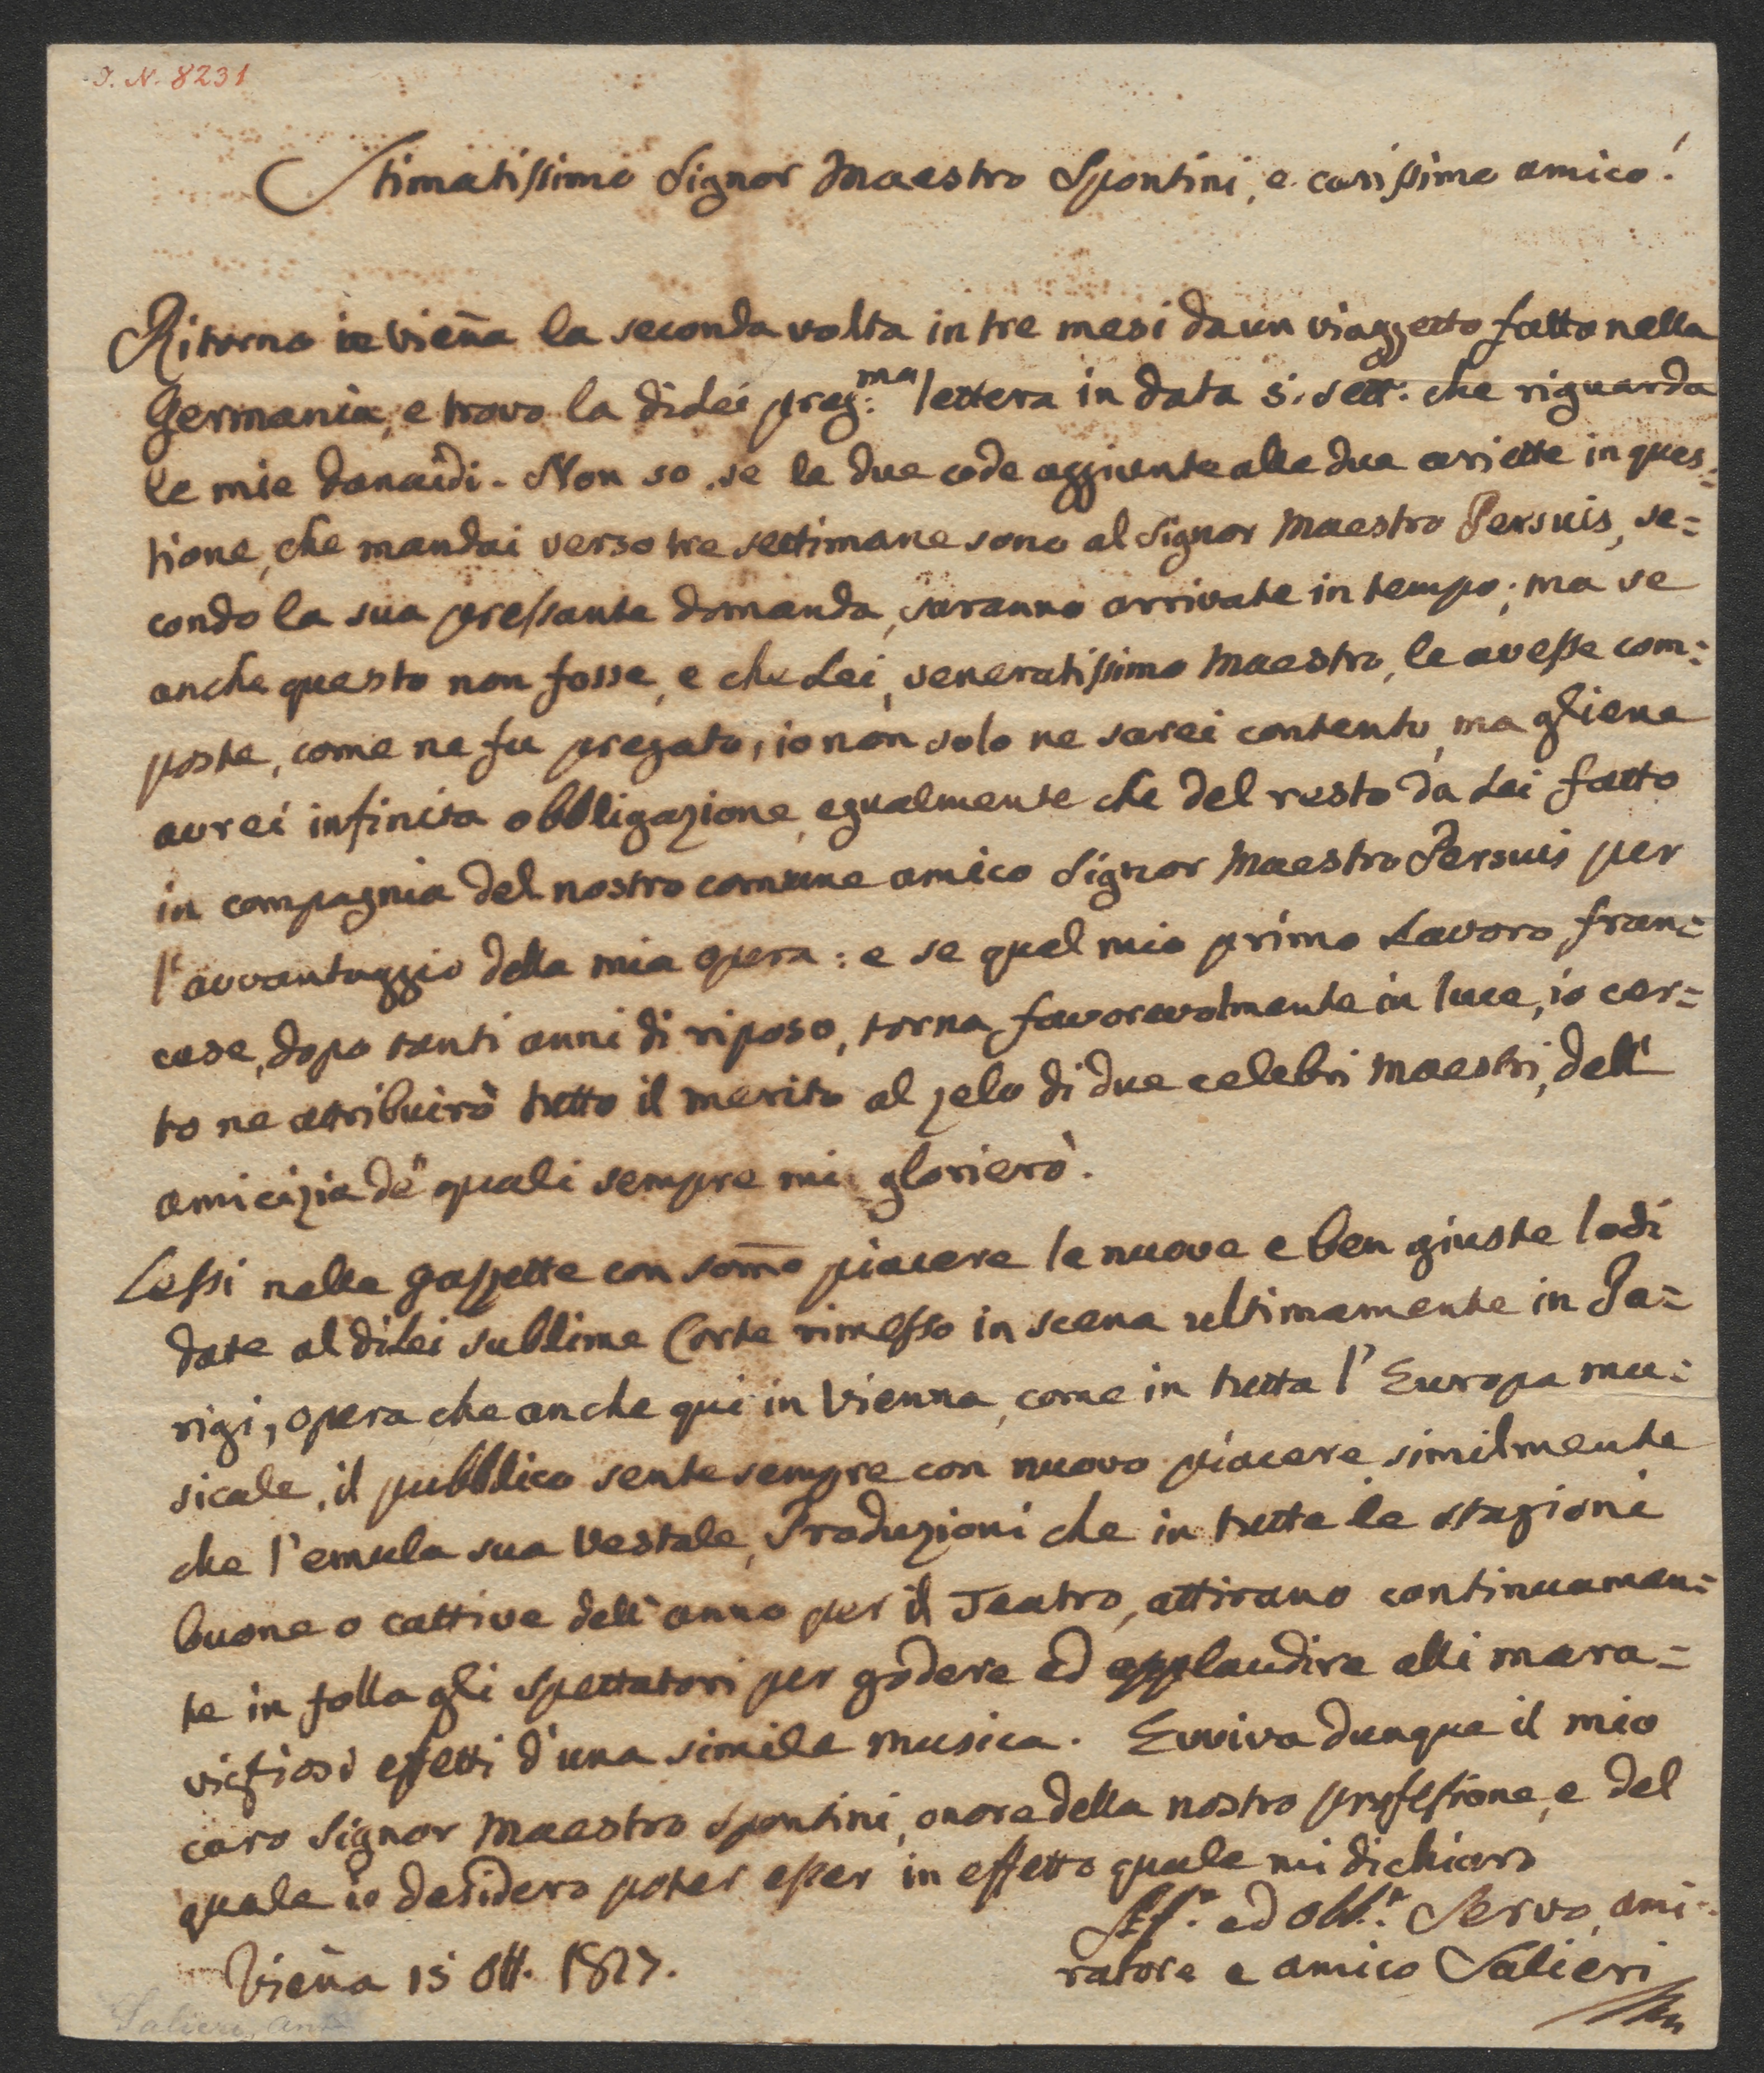 I. N. 8231
Stimatissimo Signor Maestro Spontini, e carissimo amico!
Ritorno in Vieña la seconda volta in tre mesi da un viaggetto fatto nella
Germania, e trovo la di Lei preg:ma lettera in data 5. sett. che riguarda
le mie Danaidi. Non so, se le due code aggiunte alle due ariette in ques=
tione, che mandai verso tre settimane sono al Signor Maestro Persuis, se=
condo la sua pressante domanda, saranno arrivate in tempo; ma se
anche questo non fosse, e che Lei, veneratissimo Maestro, le avesse com=
poste, come ne fu pregato, io non solo ne sarei contento, ma gliene
avrei infinita obbligazione, egualmente che del resto da Lei fatto
in compagnia del nostro comune amico Signor Maestro Persuis per
l'avvantaggio della mia opera: e se quel mio primo Lavoro fran=
cese, dopo tanti anni di riposo, torna favorevolmente in luce, io cer=
to ne attribuirò tutto il merito al zelo di due celebri Maestri, dell'
amicizia de' quali sempre mi glorierò.
Lessi nelle gazzette con som̄o piacere le nuove e ben giuste lodi
date al di Lei sublime Cortez rimesso in scena ultimamente in Pa=
rigi, opera che anche qui in Vienna, come in tutta l'Europa mu=
sicale, il pubblico sente sempre con nuovo piacere, similmente
che l'emula sua Vestale, Produzioni che in tutte le stagioni
buone o cattive dell'anno per il Teatro, attirano continuamen=
te in folla gli spettatori per godere ed applaudire alli mara=
vigliosi effetti d'una simile musica. Evviva dunque il mio
caro Signor Maestro Spontini, onore della nostra professione, e del
quale io desidero poter esser in effetto quale mi dichiaro
Vieña 15 Ott. 1817.
Aff.º ed obb.º Servo, ami=
ratore e amico Salieri
Salieri, Ant